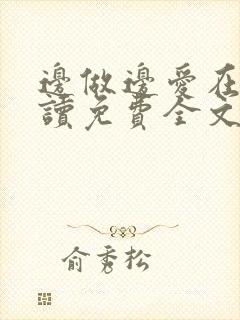 邊做邊愛在
讀免費全文
俞秀松